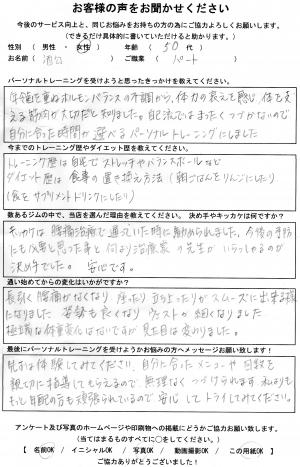 お客様の声をお聞かせください
今後のサービス向上と、同じお悩みをお持ちの方の為にご協力よろしくお願いします。
（できるだけ具体的に書いていただけると助かります。）
性別（ 男性 ・ 女性 ） 年齢（ 50 代 ）
お名前（ 匿名 ） ご職業（ パート ）
パーソナルトレーニングを受けようと思ったきっかけを教えてください。
年齢を重ねホルモンバランスの不調から、体力の衰えを感じ、体を支
える筋肉が大切だと知りました。自己流ではまったくつづかないので
自分に合った時間が選べるパーソナルトレーニングにしました
今までのトレーニング歴やダイエット歴を教えてください。
トレーニング歴は自宅でストレッチやバランスボールなど
ダイエット歴は 食事の置き換え方法（朝ごはんをりんごにしたり
（食をサプリメントドリンクにしたり）
数あるジムの中で、当店を選んだ理由を教えてください。 決め手やキッカケは何ですか？
キッカケは 腰痛治療で通っていた時に勧められました。今後の予防
にも必要と思った事と 何より治療家の先生がいらっしゃるのが
決め手でした。 安心です。
通い始めてからの変化はいかがですか？
長引く腰痛がなくなり 座ったり立ち上ったりがスムーズに出来る様
になりました 姿勢も良くなり ウェストが細くなりました
極端な体重変化はないですが 見た目は変わりました。
最後にパーソナルトレーニングを受けようかお悩みの方へメッセージお願い致します！
先ずは体験してみてください。自分に合ったメニューや日数を
親切に指導してもらえるので、無理なくつづけられます 私よりも
もっと年配の方も頑張られているので 安心してトライしてみてください。
アンケート及び写真のホームページや印刷物への掲載にどうかご協力お願い致します。
（当てはまるものすべてに○をしてください。）
【 名前OK ／ イニシャルOK ／ 写真OK ／ 動画撮影OK ／ この用紙OK 】
ご協力ありがとうございました！